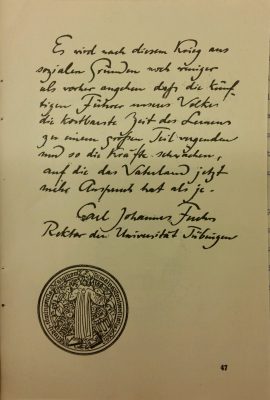 Es wird nach diesem Krieg aus
sozialen Gründen noch weniger
als vorher angehen dass die künf-
tigen Führer unseres Volkes
die kostbarste Zeit des Lernens
zu einem großen Teil vergeuden
und so die Kräfte schwächen,
auf die das Vaterland jetzt
mehr Anspruch hat als je.
Carl Johannes Fuchs
Rektor der Universität Tübingen
47